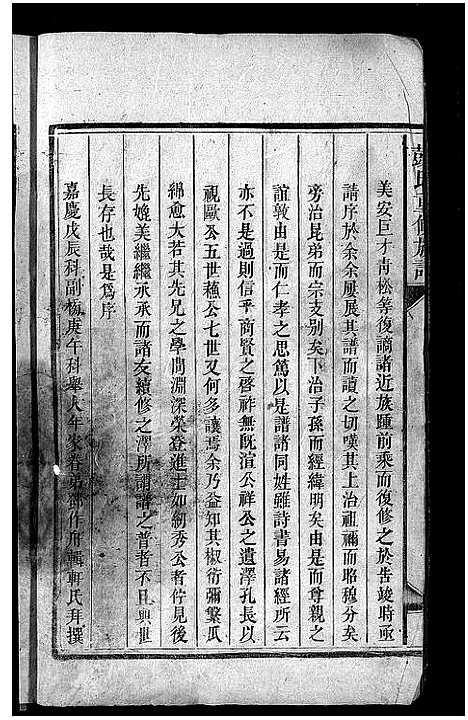 彭氏重修族譜
美安巨才青松等復謫諸近族踵前乘而復修之於告竣時亟
請序於余余屢展其譜而讀之切嘆其上治祖禰而昭穆分矣
旁治昆弟而宗支別矣下治子孫而經緯明矣由是而尊親之
誼敦由是而仁孝之思篤以是譜諸同姓雖詩書易諸經所云
亦不是過則信乎商賢之啓祚無既渲公祥公之遺澤孔長以
視歐公五世蘓公七世又何多讓焉余乃益知其椒衍彌繁瓜
綿愈大若其先兄之學問淵深榮登進士如絢秀公者佇見後
先媲美繼繼承承而諸友續修之澤所謂譜之普者不且與世
長存也哉是爲序
嘉慶戊辰科副榜庚午科舉人年家眷弟郭作舟輯軒氏拜撰